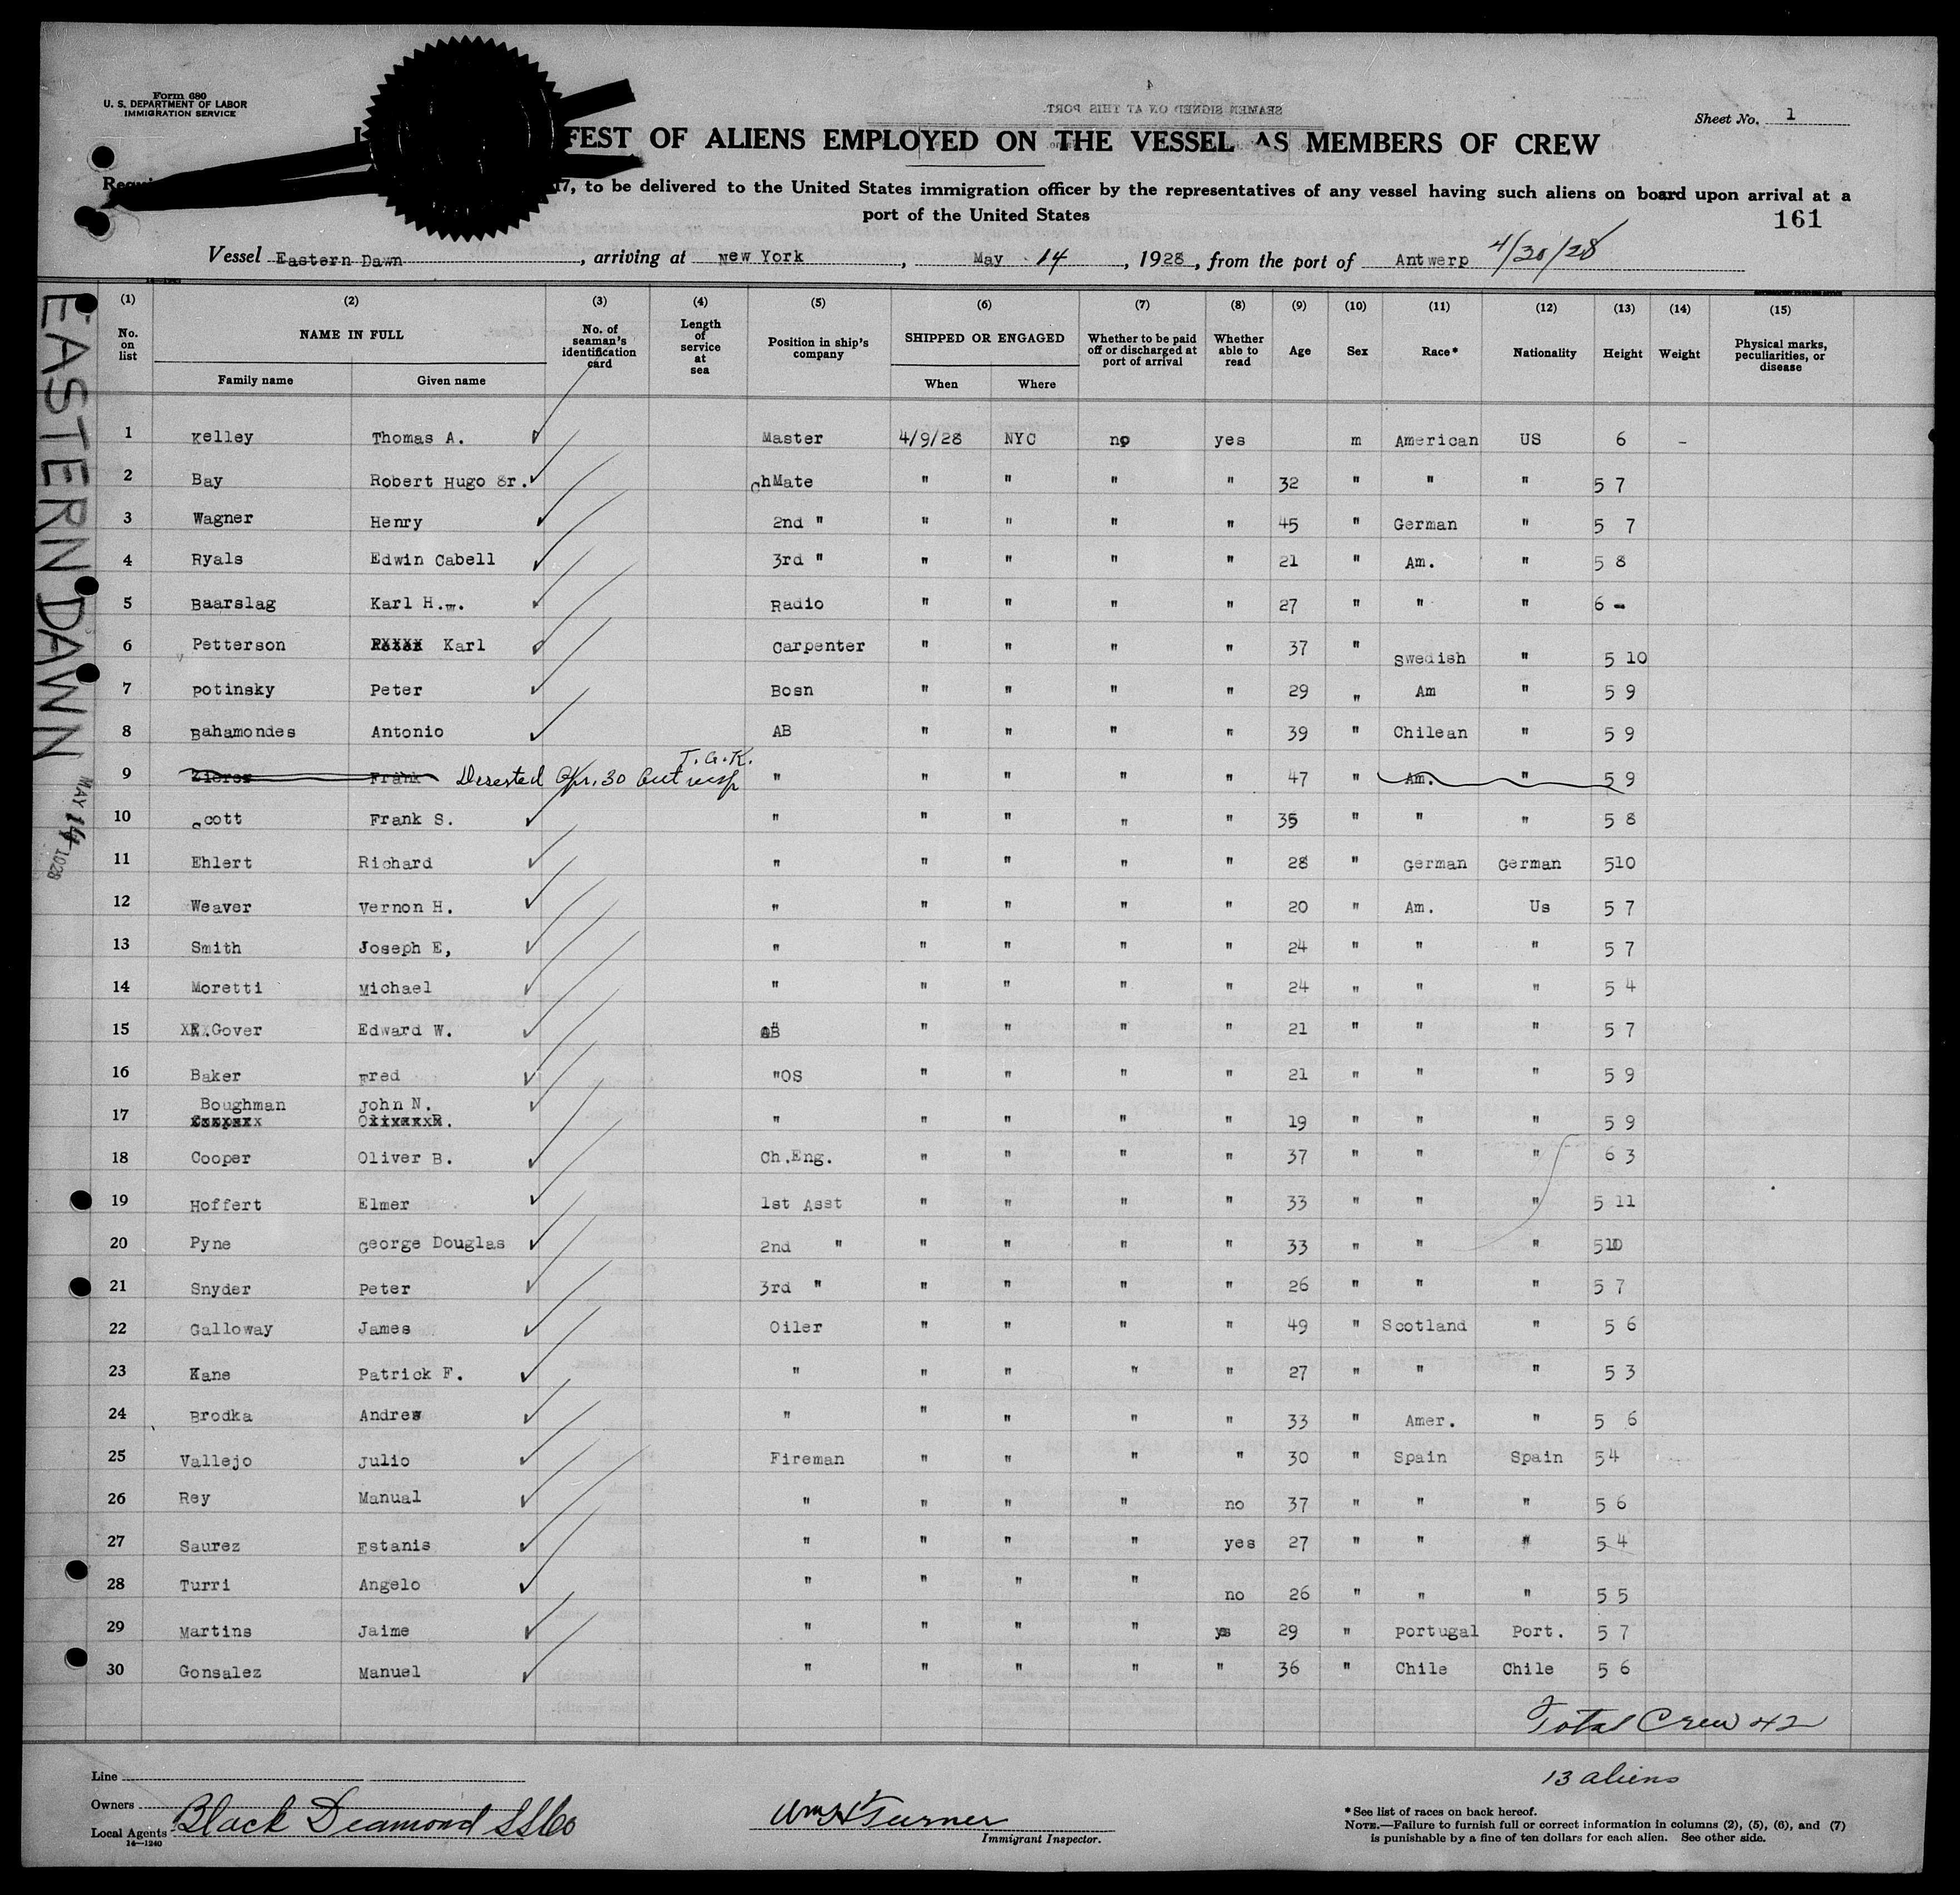 Form 680
U. S. DEPARTMENT OF LABOR
IMMIGRATION SERVICE
SEAMEN SIGNED ON AT THIS PORT.
Sheet No. 1
FEST OF ALIENS EMPLOYED ON THE VESSEL AS MEMBERS OF CREW
17, to be delivered to the United States immigration officer by the representatives of any vessel having such aliens on board upon arrival at a
port of the United States
161
Vessel Eastern Dawn, arriving at New York, May 14, 1928, from the port of Antwerp 4/30/28
EASTERN DAWN
MAY 14 1928
(1) (2) (3) (4) (5) (6) (7) (8) (9) (10) (11) (12) (13) (14) (15)
No. on list NAME IN FULL Family name Given name No. of seaman's identification card Length of service at sea Position in ship's company SHIPPED OR ENGAGED When Where Whether to be paid off or discharged at port of arrival Whether able to read Age Sex Race* Nationality Height Weight Physical marks, peculiarities, or disease
1 Kelley Thomas A. Master 4/9/28 NYC no yes m American US 6 -
2 Bay Robert Hugo Sr. ChMate " " " " 32 " " " 5 7
3 Wagner Henry 2nd " " " " " 45 " German " 5 7
4 Ryals Edwin Cabell 3rd " " " " " 21 " Am. " 5 8
5 Baarslag Karl H.W. Radio " " " " 27 " " " 6 -
6 Petterson Karl Carpenter " " " " 37 " Swedish " 5 10
7 Potinsky Peter Bosn " " " " 29 " Am " 5 9
8 Bahamondes Antonio AB " " " " 39 " Chilean " 5 9
T.G.K.
9 Frank Deserted Apr. 30 Antwerp " " " " " 47 " Am. " 5 9
10 Scott Frank S. " " " " " 35 " " " 5 8
11 Ehlert Richard " " " " " 28 " German German 510
12 Weaver Vernon H. " " " " " 20 " Am. Us 5 7
13 Smith Joseph E, " " " " " 24 " " " 5 7
14 Moretti Michael " " " " " 24 " " " 5 4
15 Gover Edward W. AB " " " " 21 " " " 5 7
16 Baker Fred "OS " " " " 21 " " " 5 9
17 Boughman John N. " " " " " 19 " " " 5 9
18 Cooper Oliver B. Ch.Eng. " " " " 37 " " " 6 3
19 Hoffert Elmer 1st Asst " " " " 33 " " " 5 11
20 Pyne George Douglas 2nd " " " " " 33 " " " 510
21 Snyder Peter 3rd " " " " " 26 " " " 5 7
22 Galloway James Oiler " " " " 49 " Scotland " 5 6
23 Kane Patrick F. " " " " " 27 " " " 5 3
24 Brodka Andrew " " " " " 33 " Amer. " 5 6
25 Vallejo Julio Fireman " " " " 30 " Spain Spain 54
26 Rey Manual " " " " no 37 " " " 5 6
27 Saurez Estanis " " " " yes 27 " " " 5 4
28 Turri Angelo " " " " no 26 " " " 5 5
29 Martins Jaime " " " " yes 29 " Portugal Port. 5 7
30 Gonsalez Manuel " " " " " 36 " Chile Chile 5 6
Total Crew 42
13 aliens
Line
Owners
Local Agents Black Diamond SS Co
14—1240
Wm H Turner
Immigrant Inspector.
*See list of races on back hereof.
NOTE.—Failure to furnish full or correct information in columns (2), (5), (6), and (7)
is punishable by a fine of ten dollars for each alien. See other side.